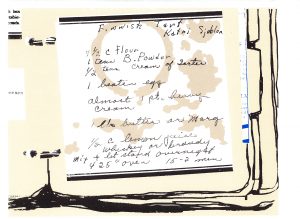 Kathi Sjoblom
½ c Flour
1 team B. Powder
½ team cream of tarter
1 beaten egg
almost 1 pt. heavy
cream
butter or Marg
½ c lemon juice
whiskey or brandy
mix & let stand overnight
425° oven 15-2 min